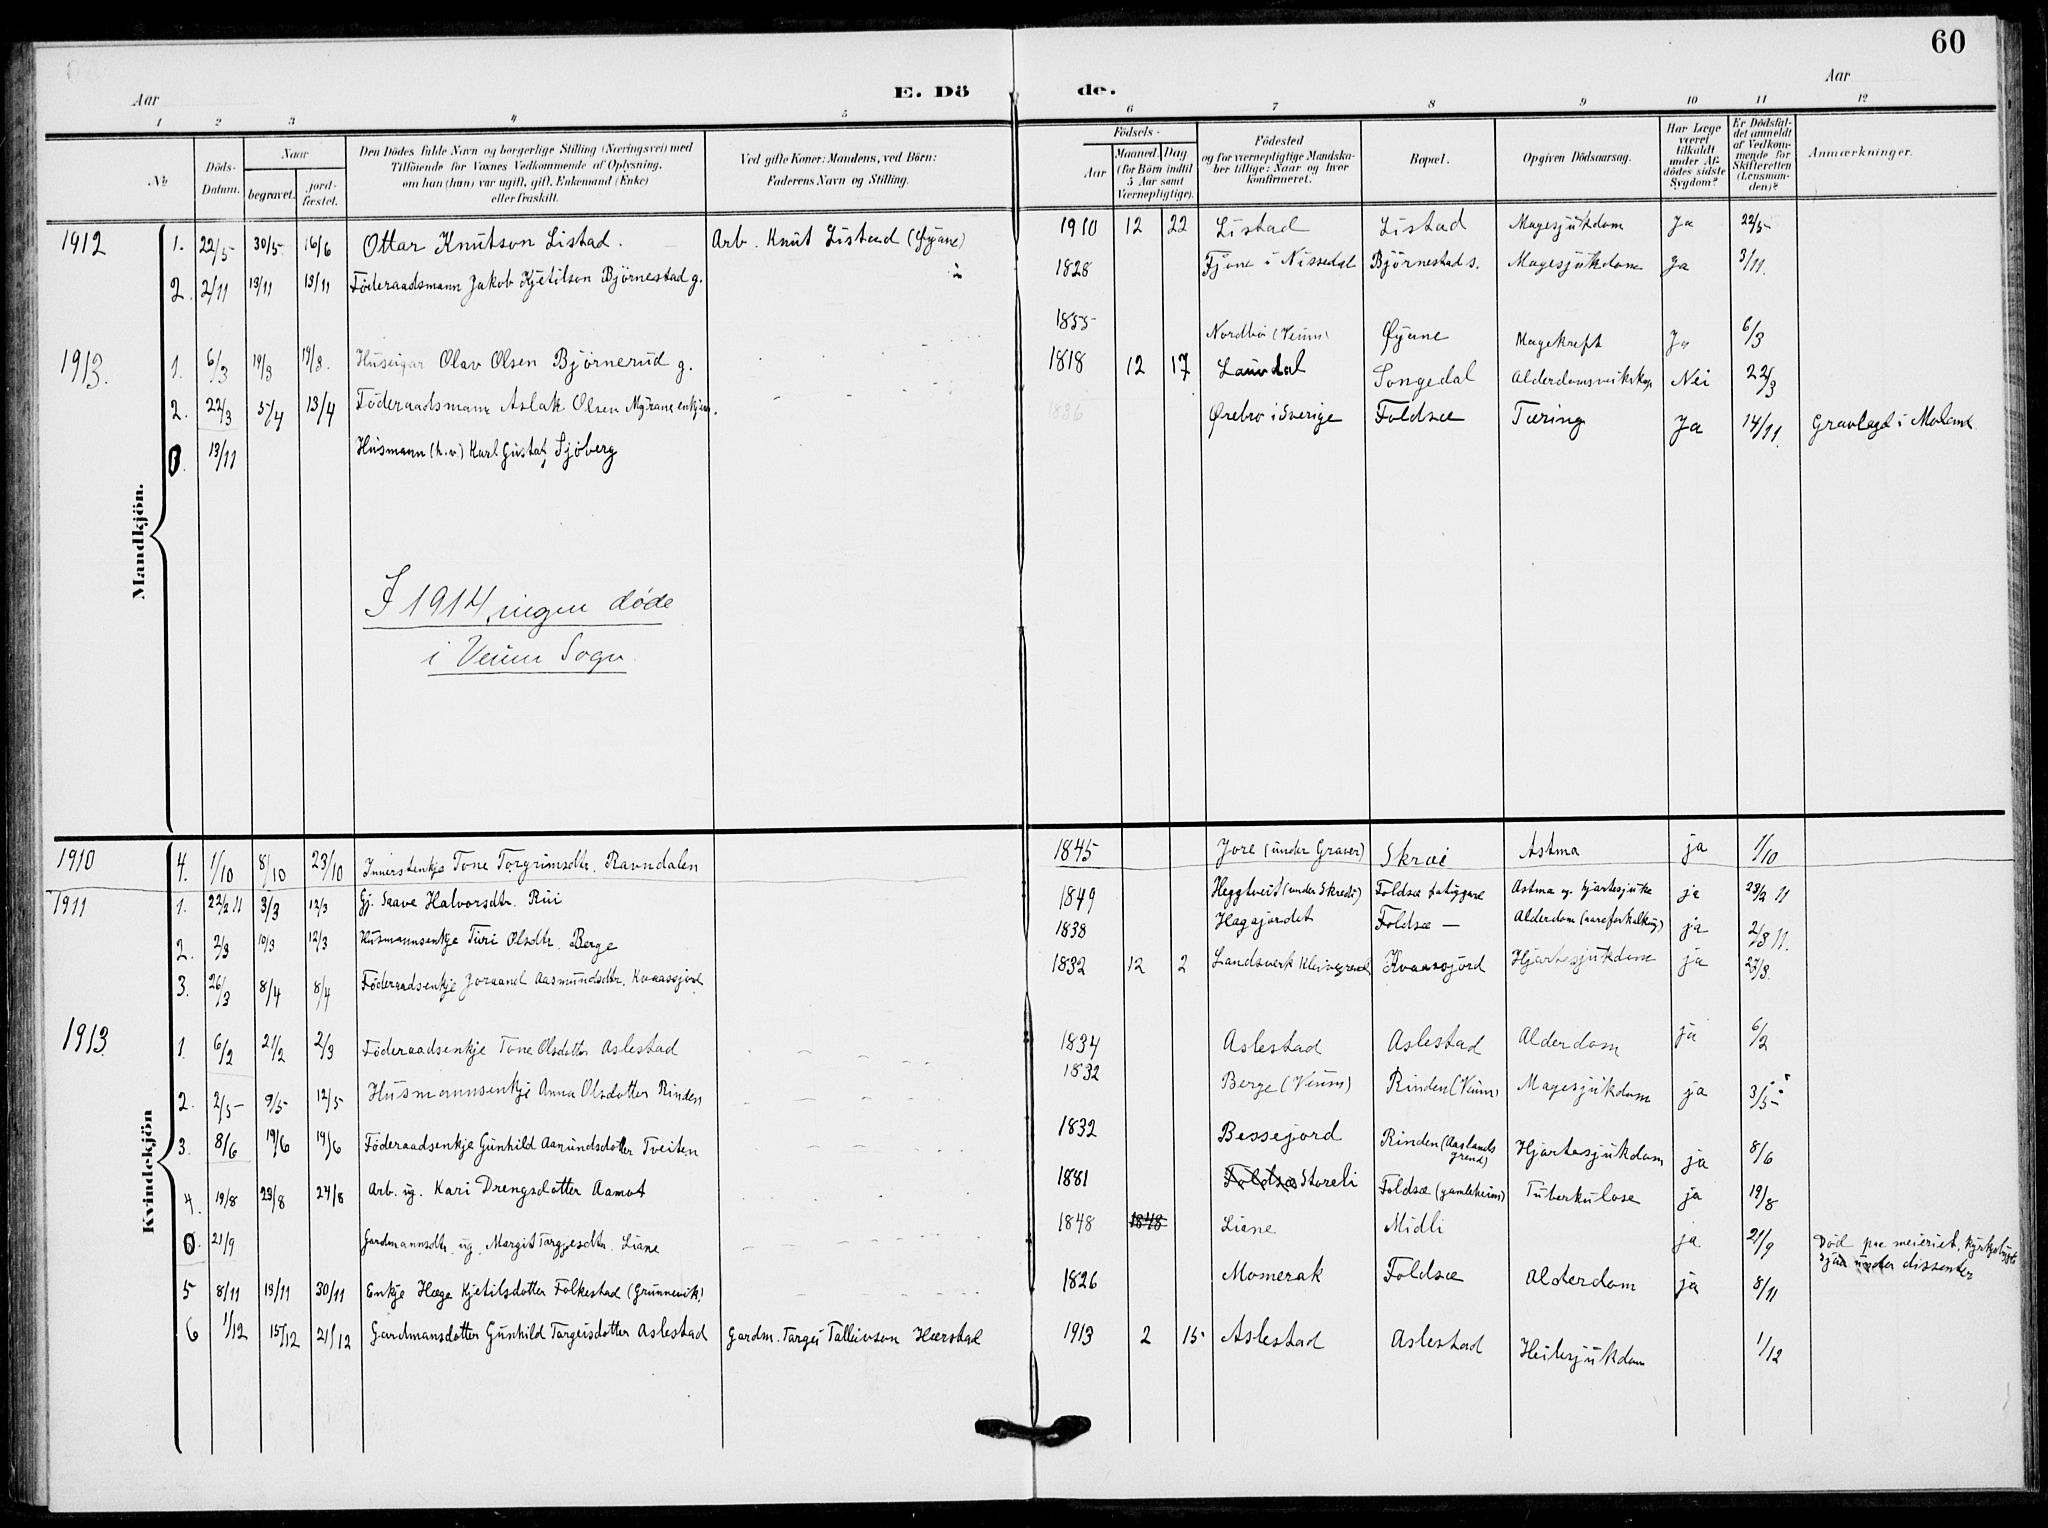 60
Aar
E. Dö de.
Aar
1 2 3 4 5 6 7 8 9 10 11 12
№
Döds-Datum.
Naar
begravet.
jord-fæstet.
Den Dödes fulde Navn og borgerlige Stilling (Næringsvei) med
Tilföiende for Voxnes Vedkommende af Oplysning,
om han (hun) var ugift, gift, Enkemand (Enke)
eller fraskilt.
Ved gifte Koner: Mandens, ved Börn:
Faderens Navn og Stilling.
Födsels-
Aar
Maaned. Dag
(for Börn indtil
5 Aar samt
Værnepligtige).
Födested
og for værnepligtige Mandska-
ber tillige: Naar og hvor
konfirmeret.
Bopæl.
Opgiven Dödsaarsag.
Har Læge
været
tilkaldt
under Af-
dödes sidste
Sygdom?
Er Dödsfal-
det anmeldt
af Vedkom-
mende for
Skifteretten
(Lensman-
den)?
Anmærkninger.
Mandkjön.
1912 1. 22/5 30/5 16/6 Ottar Knutson Listad. Arb. Knut Listad (Øyane) 1910 12 22 Listad Listad Magesjukdom Ja 22/5
2. 2/11 13/11 13/11 Föderaadsmann Jakob Kjetilson Björnestad g. 1828 Fjone i Nissedal Björnestad s. Magesjukdom Ja 3/11.
1913. 1. 6/3 19/3 19/3. Huseigar Olav Olsen Björnerud g. 1855 Nordbö (Veum) Øyane Magekreft Ja 6/3
2. 22/3 5/4 13/4 Föderaadsmann Aslak Olsen Myrane enkjem. 1818 12 17 Laurdal Songedal Alderdomsveikskap Nei 22/3
0. 13/11 Husmann (h.v.) Karl Gustaf Sjöberg 1836 Ørebro i Sverige Foldsæ Tæring Ja 14/11. Gravlagd i Moland.
I 1914, ingen døde
i Veum Sogn.
Kvindekjön
1910 4. 1/10 8/10 23/10 Innerstenkje Tone Torgrimsdtr. Ravndalen 1845 Jore (under Graver) Skræi Astma ja 1/10
1911 1. 22/2 11 3/3 12/3 Gj. Saave Halvorsdtr. Rui 1849 Heggtveit (under Skredi) Foldsæ fatiggard Astma og hjartesjuke ja 23/2 11
2. 2/3 10/3 12/3 Husmannsenkje Turi Olsdtr. Berge 1838 Hagajordet Foldsæ — Alderdom (aareforkalkng) ja 2/3 11.
3. 26/3 8/4 8/4 Föderaadsenkje Joraand Aasmundsdtr. Kvaasjord 1832 12 2 Landsverk Kleivgrend Kvaassjord Hjartesjukdom ja 27/3.
1913. 1. 6/2 21/2 2/3 Föderaadsenkje Tone Olsdotter Aslestad 1834 Aslestad Aslestad Alderdom ja 6/2
2. 2/5 9/5 12/5 Husmannsenkje Anna Olsdotter Rinden 1832 Berge (Veum) Rinden (Veum) Magesjukdom ja 3/5
3. 8/6 19/6 19/6 Föderaadsenkje Gunhild Aanundsdotter Tveiten 1832 Bessejord Rinden (Aaslands grend) Hjartesjukdom ja 8/6
4. 19/8 23/8 24/8 Arb. ug. Kari Drengsdotter Aamot 1881 Foldsæ Storeli Foldsæ (gamleheim) Tuberkulose ja 19/8
0. 21/9 Gardmannsdtr. ug. Margit Targjesdtr. Liane 1848 1848 Liane Midli ja 21/9 Död paa meieriet, Kyrkebygda
Sjaa under dissenter
5 8/11 19/11 30/11 Enkje Hæge Kjetilsdotter Folkestad (Grunnevik) 1826 Momerak Foldsæ Alderdom ja 8/11
6 1/12 15/12 21/12 Gardmansdotter Gunhild Targeisdotter Aslestad Gardm. Targei Talleivson Hærstad 1913 2 15 Aslestad Aslestad Heilesjukdom 1/12